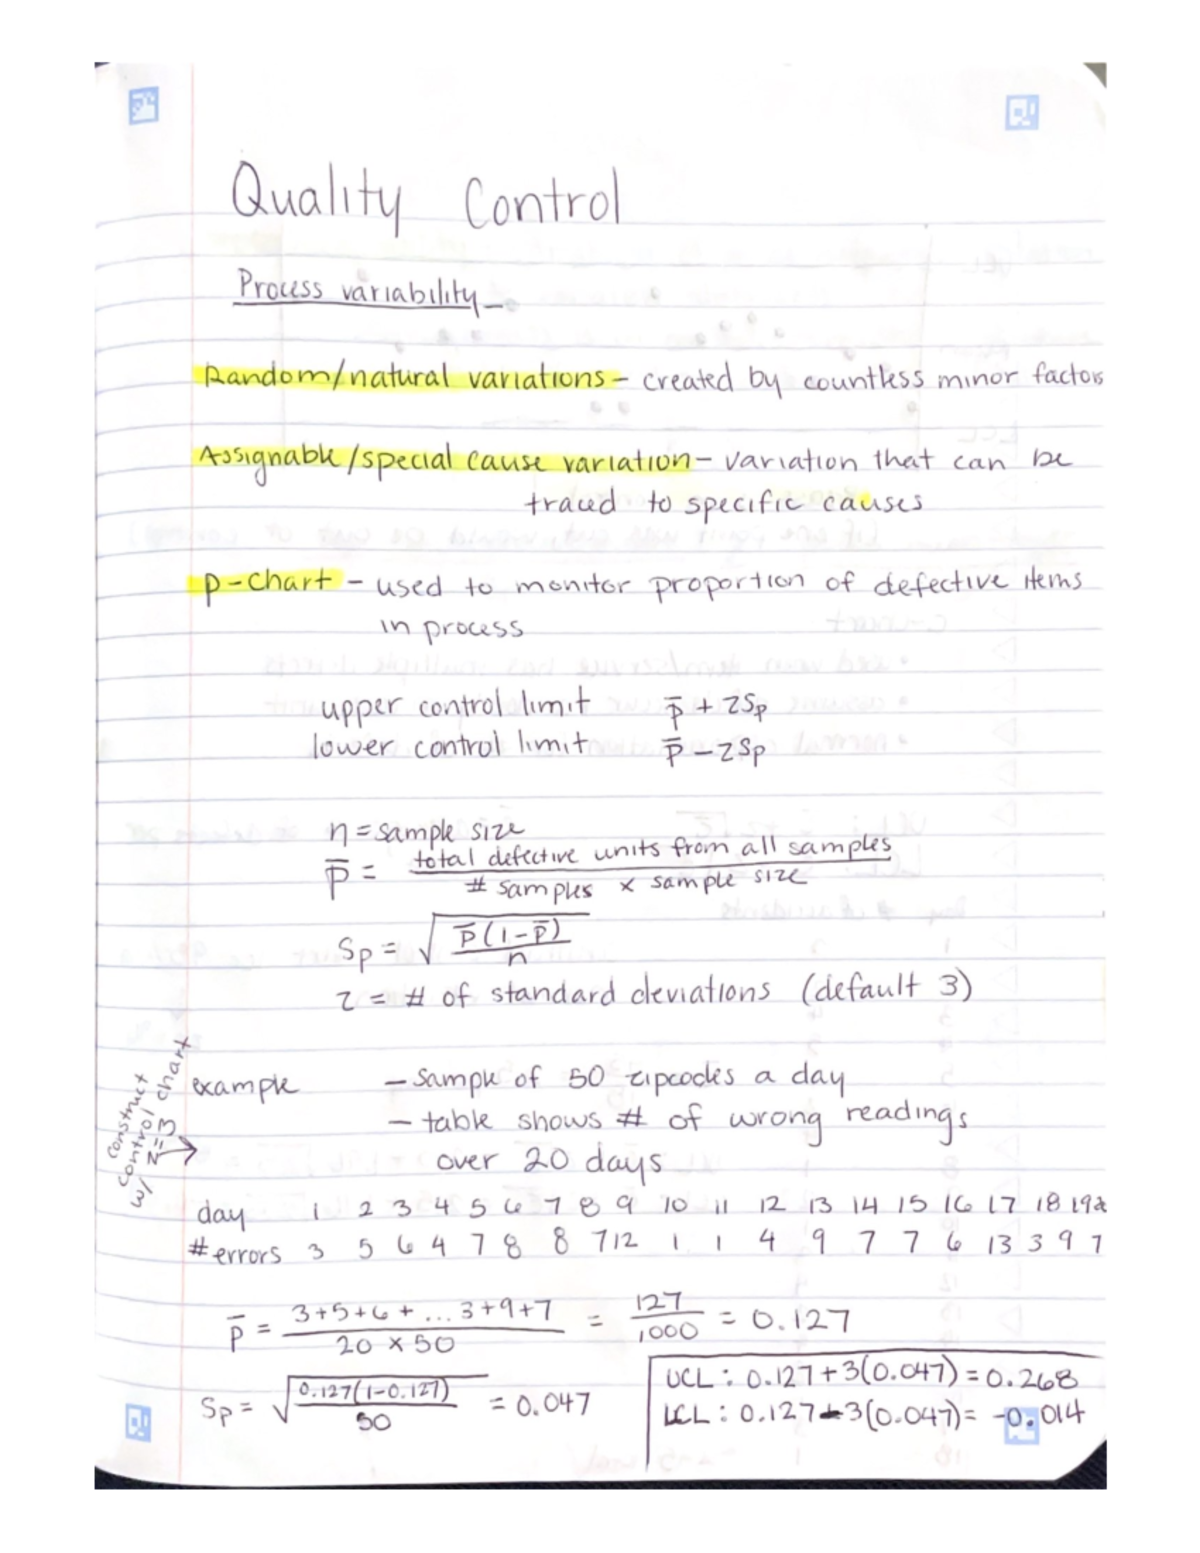 Quality Control
Process variability
Random/natural variations - created by countless minor factors
Assignable/special cause variation - variation that can be
traced to specific causes
p-chart - used to monitor proportion of defective items
in process
upper control limit p̅ + zSp
lower control limit p̅ - zSp
n = sample size
p̅ = total defective units from all samples / # samples x sample size
Sp = √(p̅(1-p̅)/n)
z = # of standard deviations (default 3)
construct
control chart
w/ z=3
example - sample of 50 zipcodes a day
- table shows # of wrong readings
over 20 days
day 1 2 3 4 5 6 7 8 9 10 11 12 13 14 15 16 17 18 19 2
# errors 3 5 6 4 7 8 8 7 12 1 1 4 9 7 7 6 13 3 9 7
p̅ = 3+5+6+ ... 3+9+7 / 20 x 50 = 127/1000 = 0.127
Sp = √(0.127(1-0.127)/50) = 0.047
UCL: 0.127+3(0.047) = 0.268
LCL: 0.127-3(0.047) = -0.014